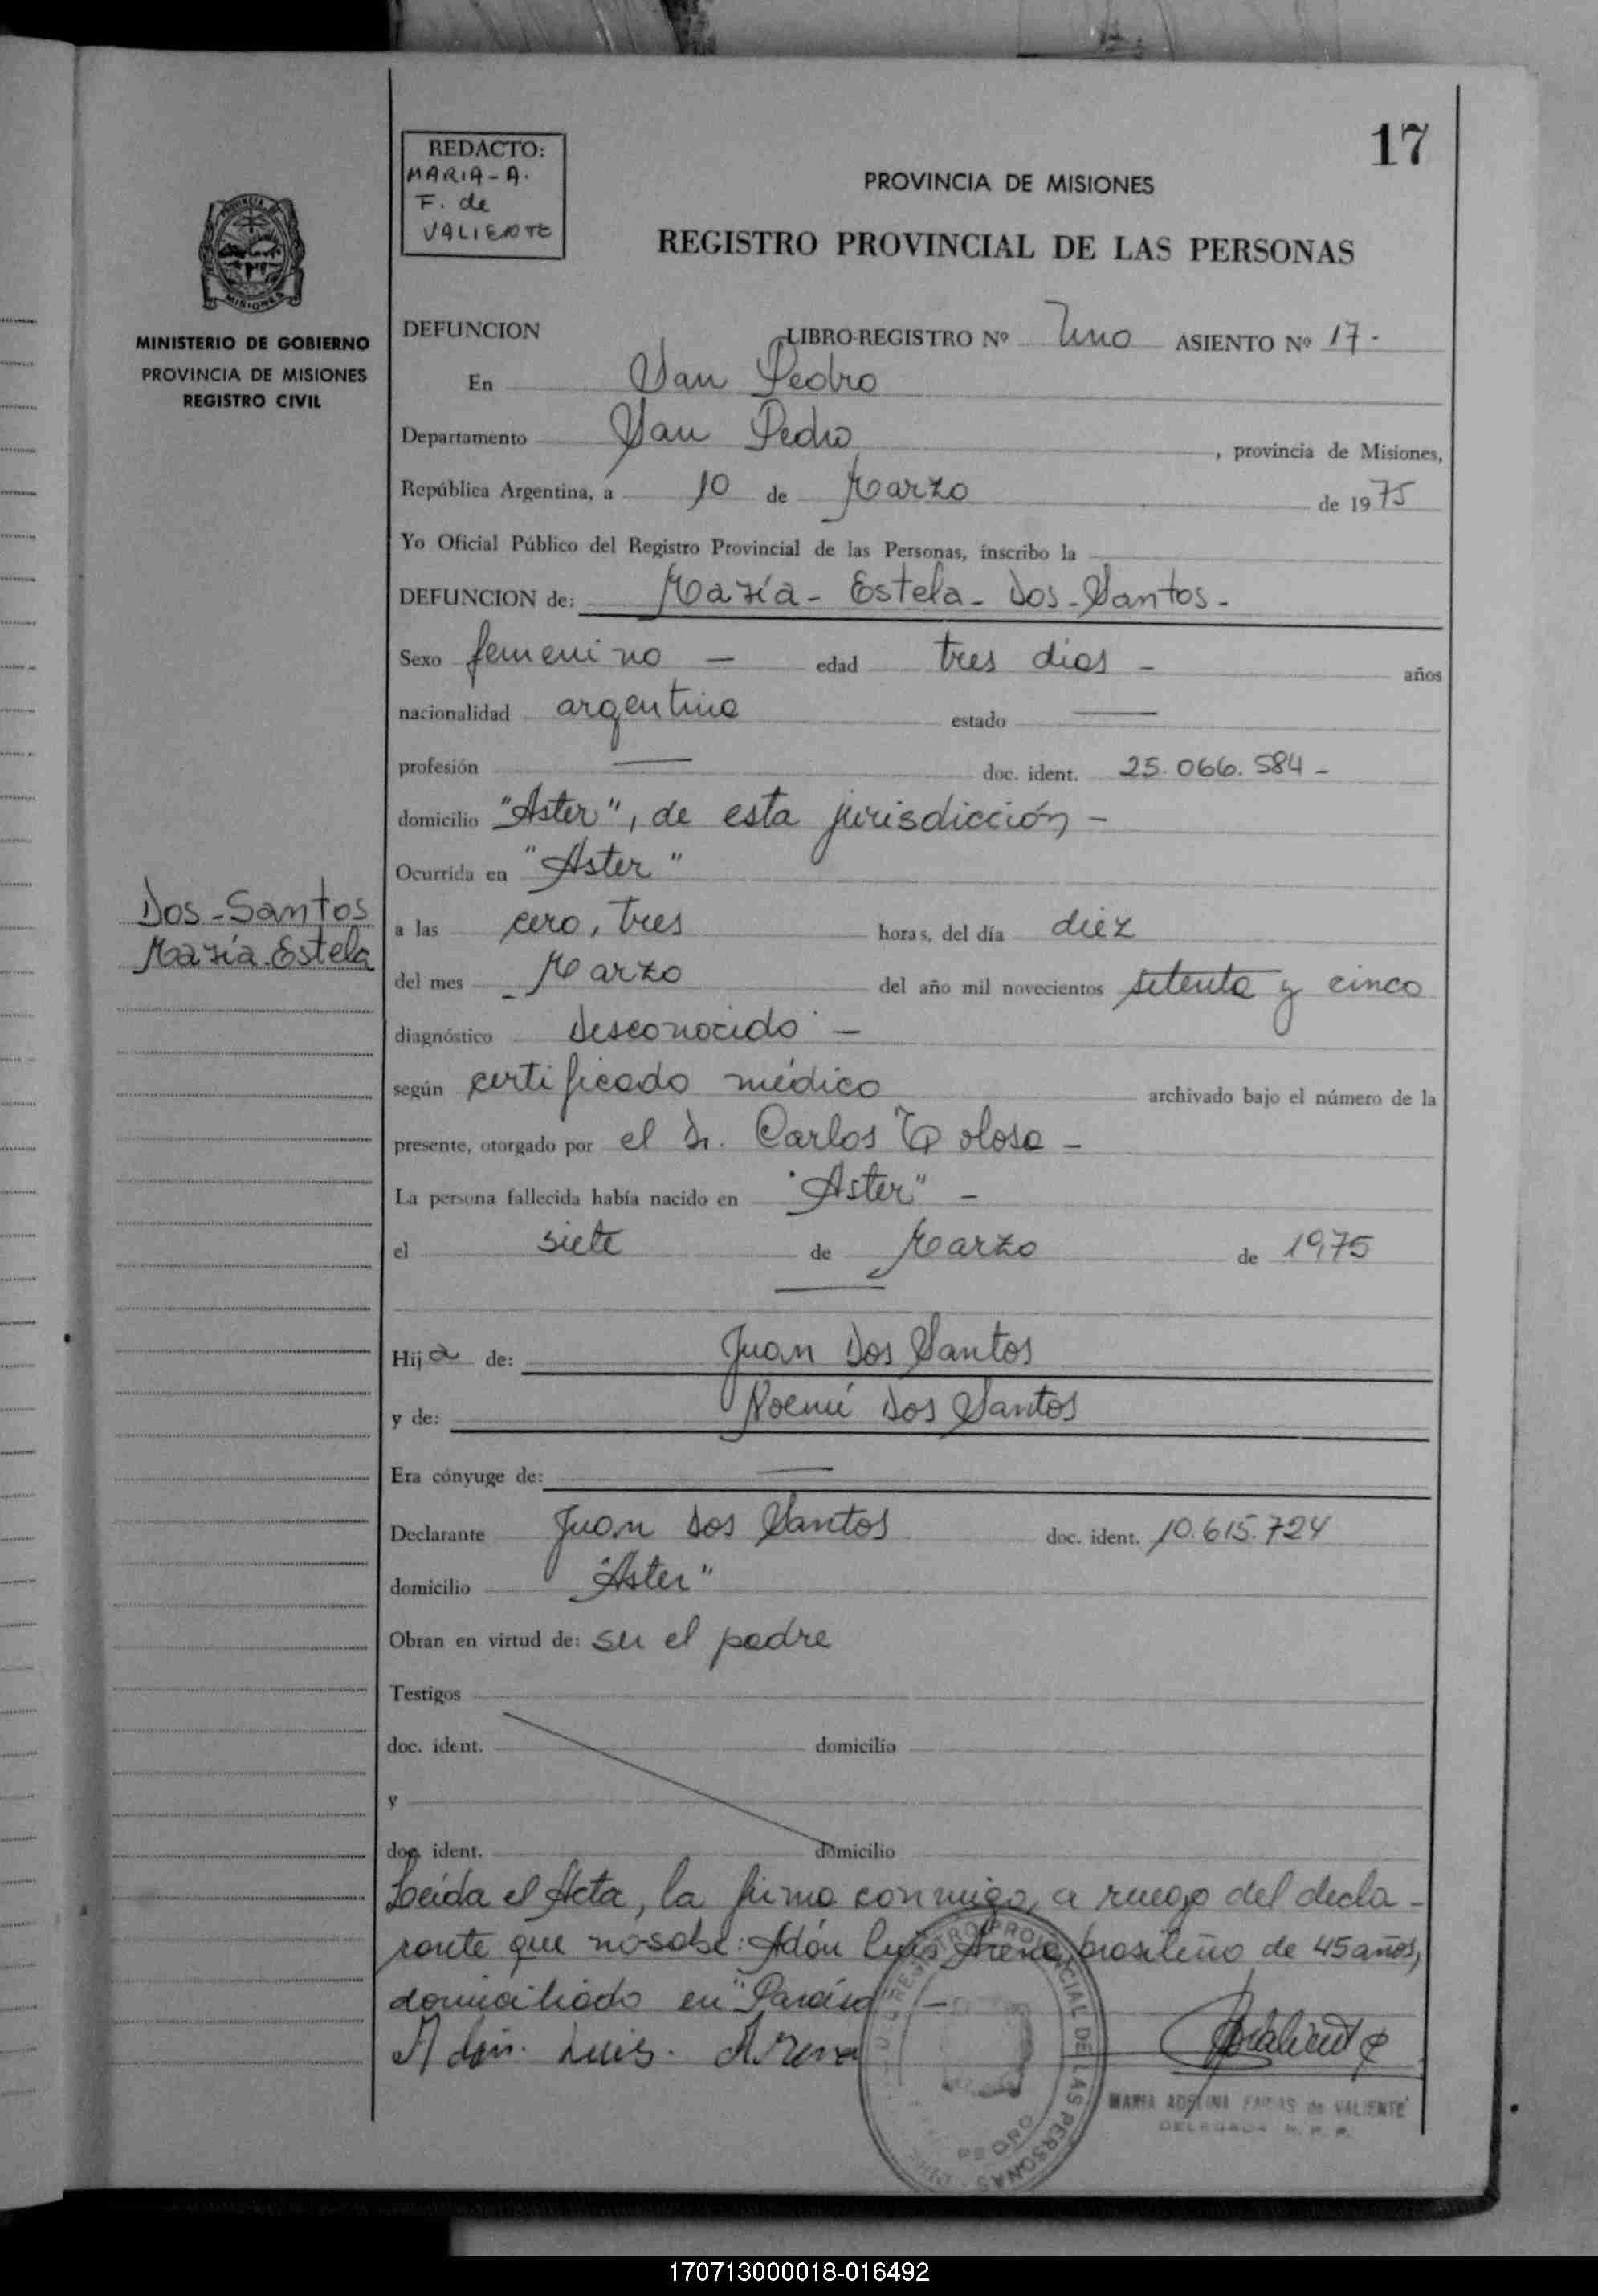 17
REDACTO:
MARIA-A.
F. de
VALIENTE
PROVINCIA DE MISIONES
REGISTRO PROVINCIAL DE LAS PERSONAS
MINISTERIO DE GOBIERNO
PROVINCIA DE MISIONES
REGISTRO CIVIL
DEFUNCION LIBRO-REGISTRO Nº Uno ASIENTO Nº 17-
En San Pedro
Departamento San Pedro, provincia de Misiones,
República Argentina, a 10 de Marzo de 1975
Yo Oficial Público del Registro Provincial de las Personas, inscribo la
DEFUNCION de: María - Estela - Dos - Santos -
Sexo femenino — edad tres dias - años
nacionalidad argentina estado —
profesión — doc. ident. 25.066.584 -
domicilio "Aster", de esta jurisdicción -
Ocurrida en "Aster"
Dos - Santos
María - Estela
a las cero, tres horas, del día diez
del mes Marzo del año mil novecientos setenta y cinco
diagnóstico desconocido -
según certificado médico archivado bajo el número de la
presente, otorgado por el Dr. Carlos Tolosa -
La persona fallecida había nacido en "Aster" -
el siete de Marzo de 1975
Hija de: Juan Dos Santos
y de: Noemí Dos Santos
Era cónyuge de: —
Declarante Juan Dos Santos doc. ident. 10.615.724
domicilio "Aster"
Obran en virtud de: ser el padre
Testigos
doc. ident. domicilio
y
doc. ident. domicilio
Leída el Acta, la firma conmigo, a ruego del decla-
rante que no sabe: Adán Luis Arena, brasileño de 45 años,
domiciliado en "Paraíso" -
Adán. Luis. Arena
MARIA ADELINA FARIAS de VALIENTE
DELEGADA R. P. P.
REGISTRO PROVINCIAL DE LAS PERSONAS
PEDRO
170713000018-016492